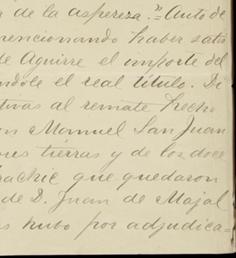 a de la aspereza."= Auto de
mencionando haber satis
de Aguirre el importe del
ndole el real título. Di
tivas al remate hecho
on Manuel San Juan
ones tierras y de los doce
rachic que quedaron
de D. Juan de Majal
s hubo por adjudica=